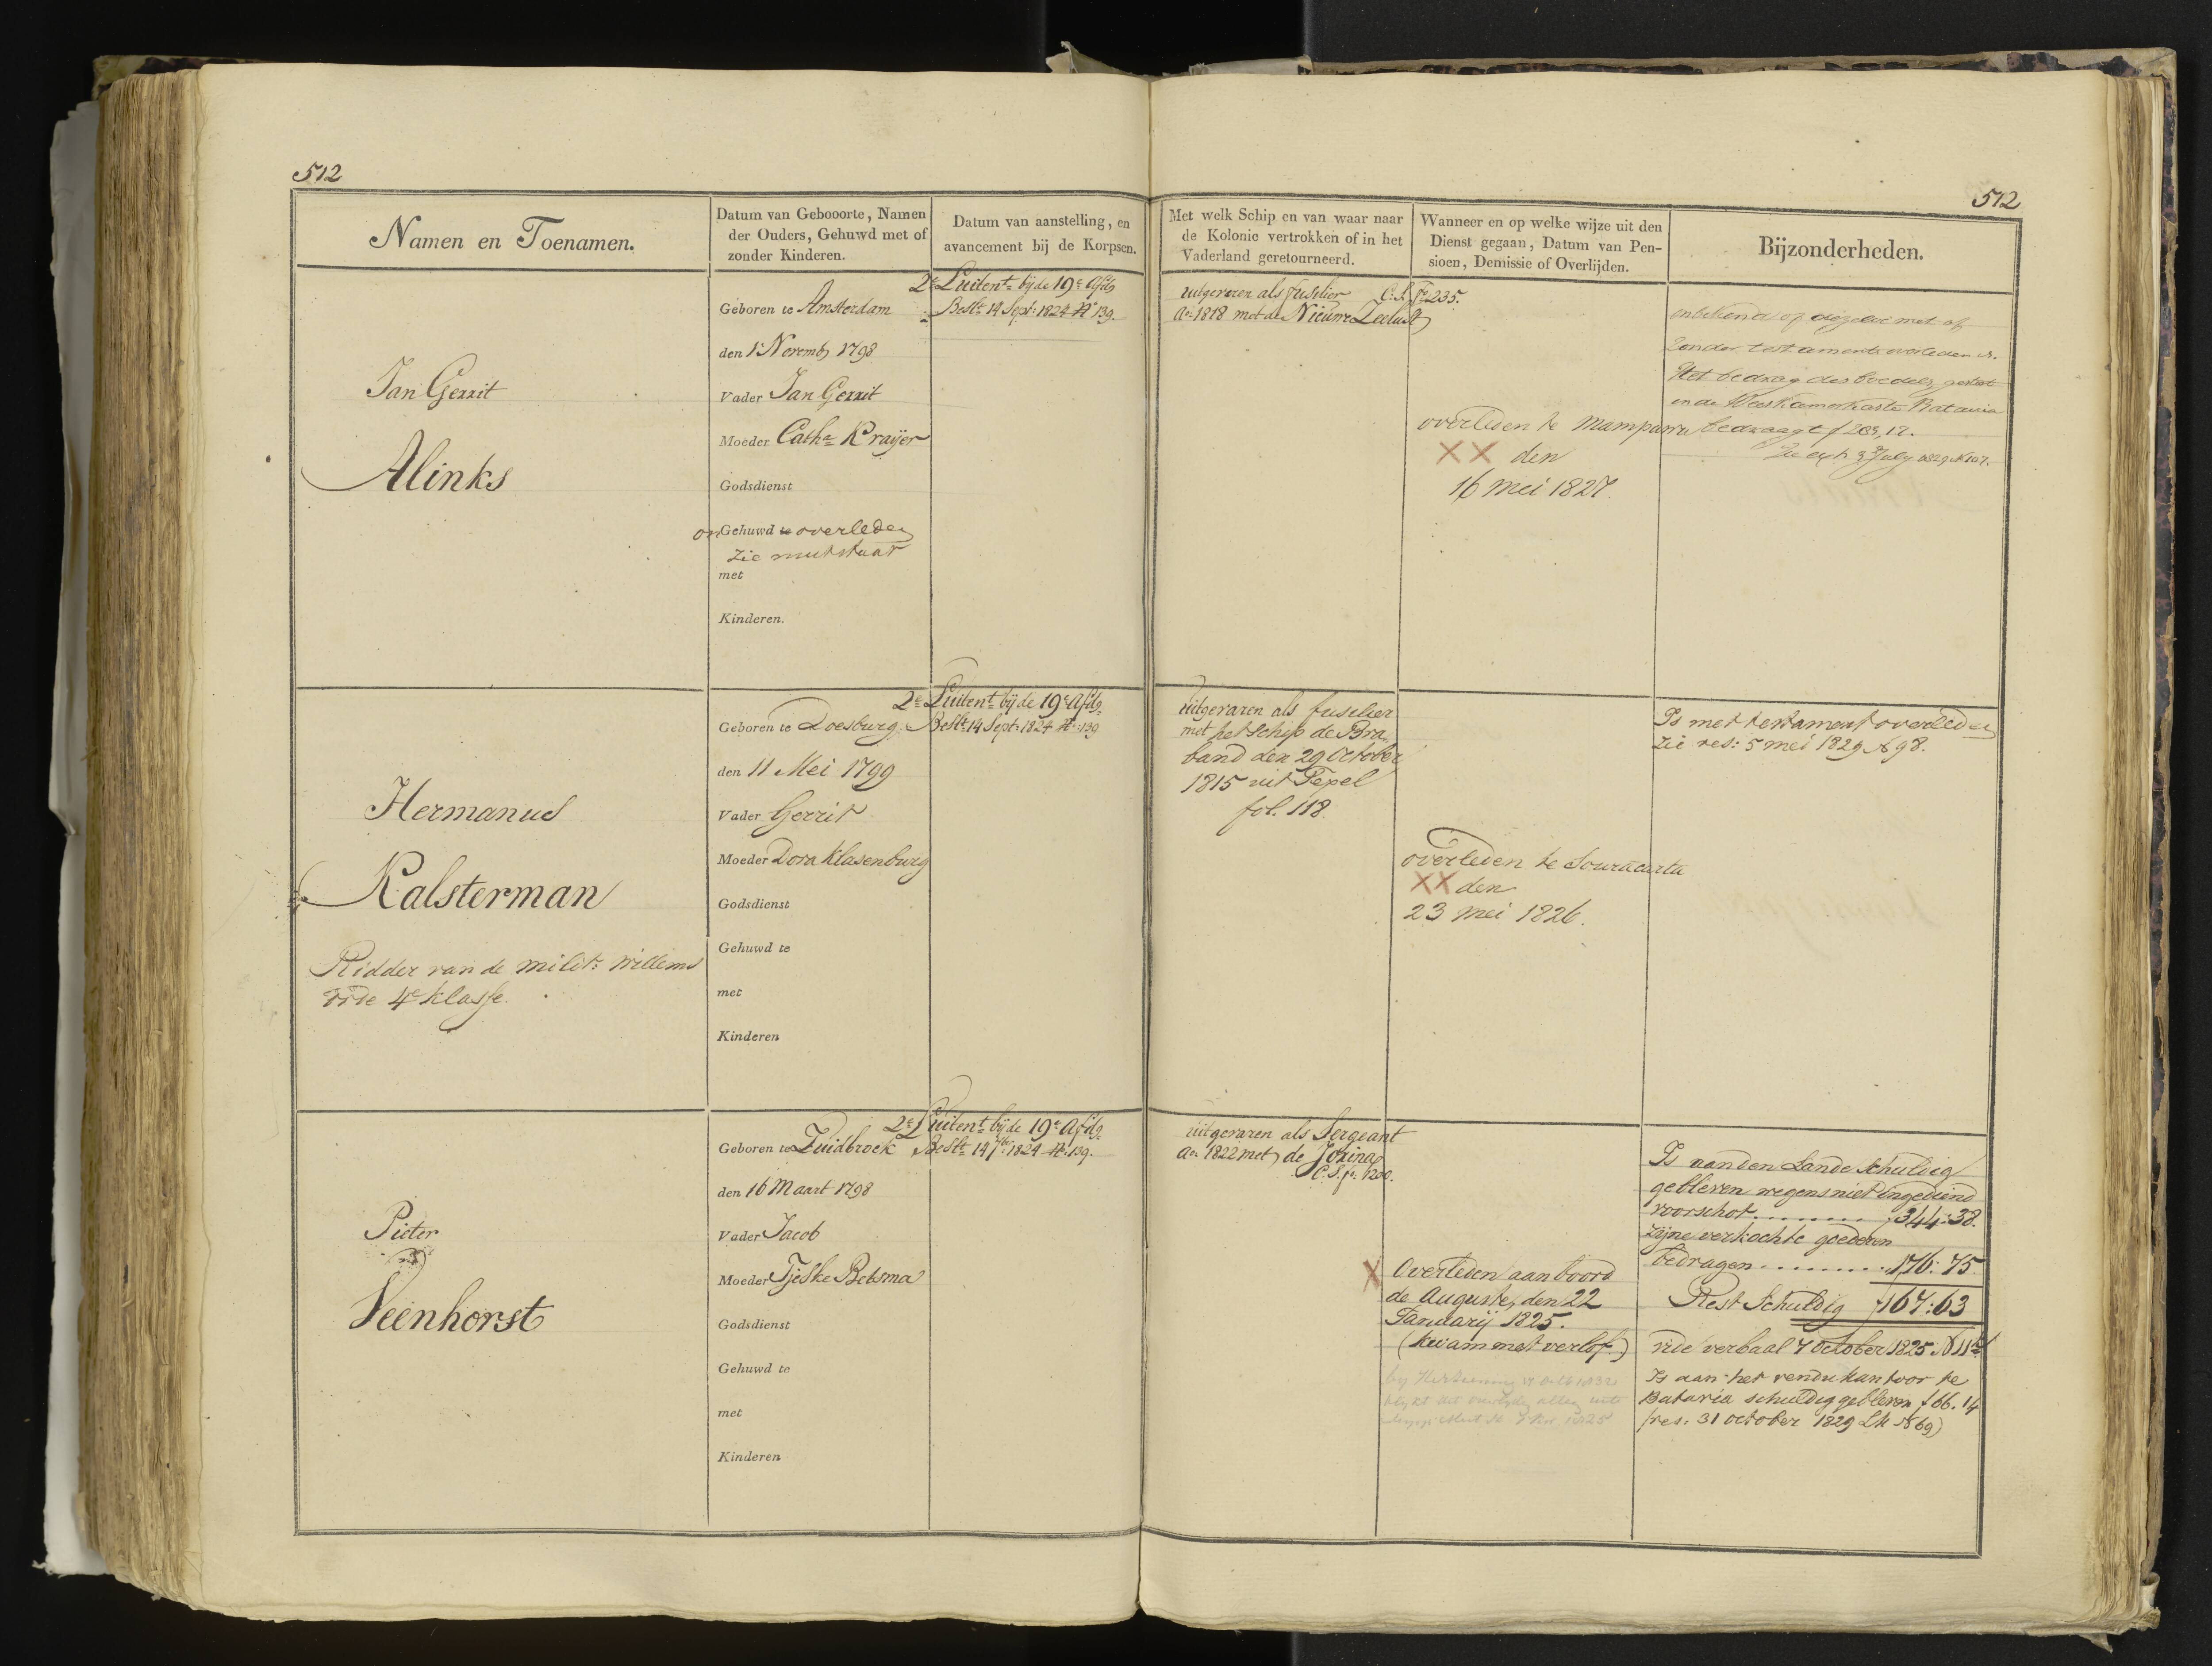 512
512
Namen en Toenamen.
Datum van Gebooorte, Namen
der Ouders, Gehuwd met of
zonder Kinderen.
Datum van aanstelling, en
avancement bij de Korpsen.
Met welk Schip en van waar naar
de Kolonie vertrokken of in het
Vaderland geretourneerd.
Wanneer en op welke wijze uit den
Dienst gegaan, Datum van Pen-
sioen, Demissie of Overlijden.
Bijzonderheden.
Jan Gerrit
Alinks
Geboren te Amsterdam
den 1 Novemb 1798
Vader Jan Gerrit
Moeder Cath Kraijer
Godsdienst
on Gehuwd te overleden
zie mutstaat
met
Kinderen.
2e Luitent bij de 19e Afdg
Beslt 14 Sept: 1824 No 139.
uitgevaren als fuselier C:S. fo 235.
Ao 1818 met de Nieuwe Zeelust
overleden te Mampawa
XX den
16 Mei 1827.
onbekend of dezelve met of
zonder testament overleden is.
Het bedrag des boedels, gestort
in de Weeskamerkas te Batavia
bedraagt f 283,12.
3 July 1829 N 107.
Hermanus
Kalsterman
Ridder van de milit: Willems
orde 4e Klasse.
Geboren te Doesburg
den 11 Mei 1799
Vader Gerrit
Moeder Dora Klasenburg
Godsdienst
Gehuwd te
met
Kinderen
2e Luitent bij de 19e Afdg
Beslt 14 Sept: 1824 No: 139
uitgevaren als fuselier
met het schip de Bra
band den 29 October
1815 uit Texel
fol. 118.
overleden te Souracarta
XX den
23 Mei 1826.
Is met testament overleden
zie res: 5 mei 1829 N 98.
Pieter
Veenhorst
Geboren te Zuidbroek
den 16 Maart 1798
Vader Jacob
Moeder Tjeske Bebsma
Godsdienst
Gehuwd te
met
Kinderen
2e Luitent bij de 19e Afdg
Beslt 14 7br: 1824 No: 139.
uitgevaren als Sergeant
ao 1822 met de Jorina
C:S. fo. 1200.
X Overleden aan boord
de Auguste, den 22
Januarij 1825.
(kwam met verlof)
Is aan den Lande schuldig
gebleven wegens niet ingediend
voorschot f 344:38.
zijne verkochte goederen
bedragen 176:75
Rest Schuldig f 167:63
vide verbaal 7 October 1825 N 11
Is aan het vendukantoor te
Batavia schuldig gebleven f 66.14
(res: 31 october 1829 La N 69)